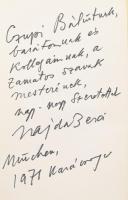 Czupi Bálintnak,
barátomnak és
kollégámnak, a
zamatos szavak
mesterének,
nagy-nagy szeretettel
Vajda Beni
München,
1971 Karácsony